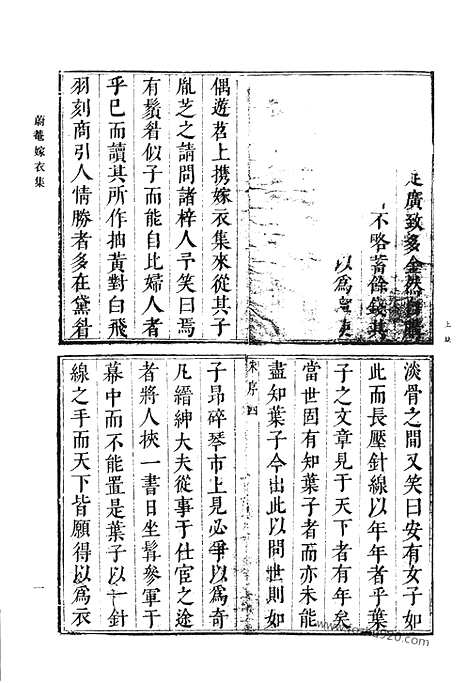 上缺
廣致多金然
不略蓄餘錢其
以為
偶遊苕上携嫁衣集來從其子
胤芝之請問諸梓人予笑曰焉
有鬚眉似子而能自比婦人者
乎已而讀其所作抽黃對白飛
羽刻商引人情勝者多在黛眉
淡骨之間又笑曰安有女子如
此而長壓針線以年年者乎葉
子之文章見于天下者有年矣
當世固有知葉子者而亦未能
盡知葉子今出此以問世則如
朱序 四
子昂碎琴市上見必爭以為奇
凡縉紳大夫從事于仕宦之途
者將人挾一書日坐髯參軍于
幕中而不能置是葉子以一針
線之手而天下皆願得以為衣
蔚菴嫁衣集
一